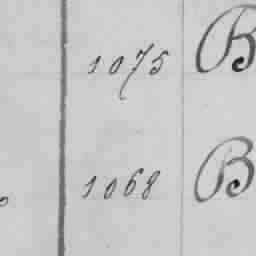 1075 B
1068 B